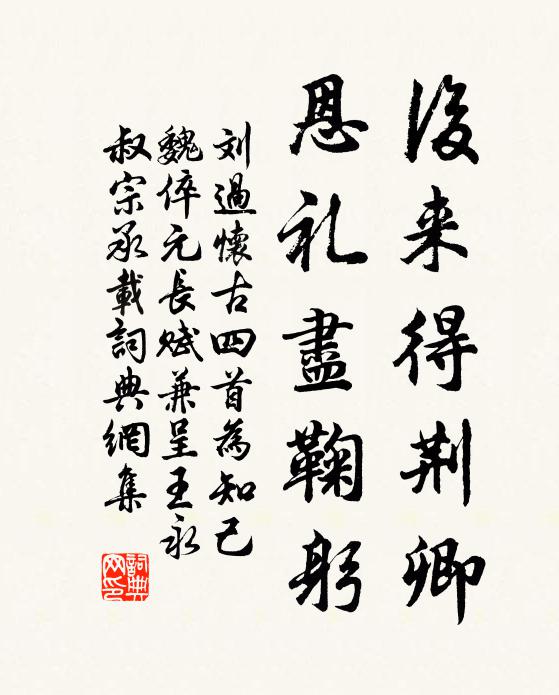 後来得荆卿
恩礼盡鞠躬
刘過懷古四首為知己
魏倅元長赋兼呈王永
叔宗丞載詞典網集
詞典
网印